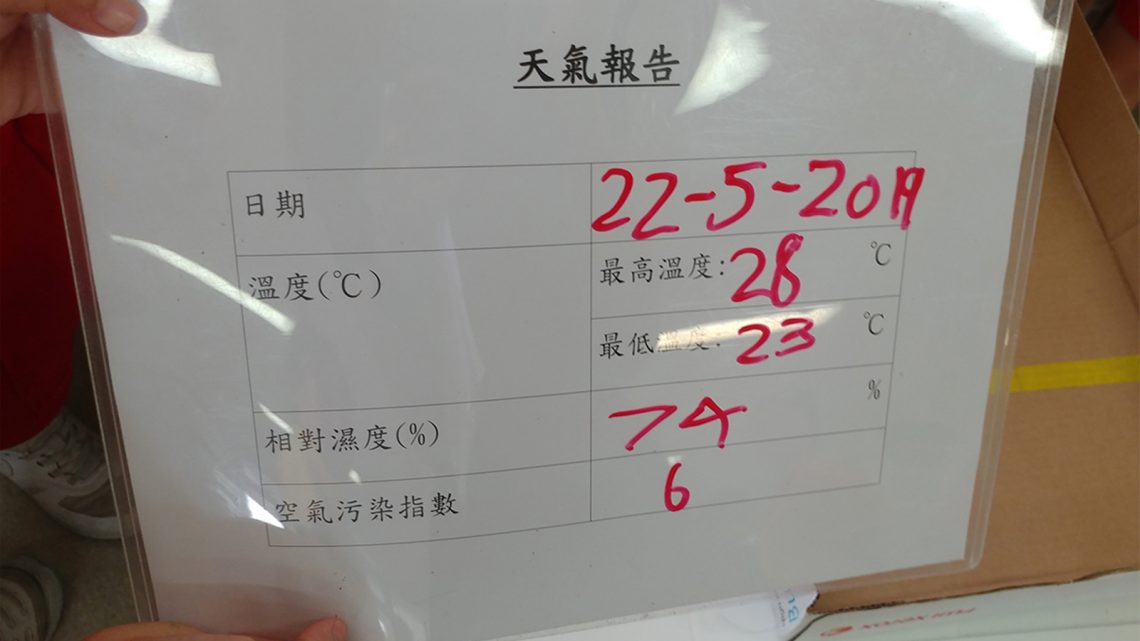 天氣報告
日期 22-5-2019
溫度(℃) 最高溫度: 28 ℃
最低溫度: 23 ℃
相對濕度(%) 74 %
空氣污染指數 6